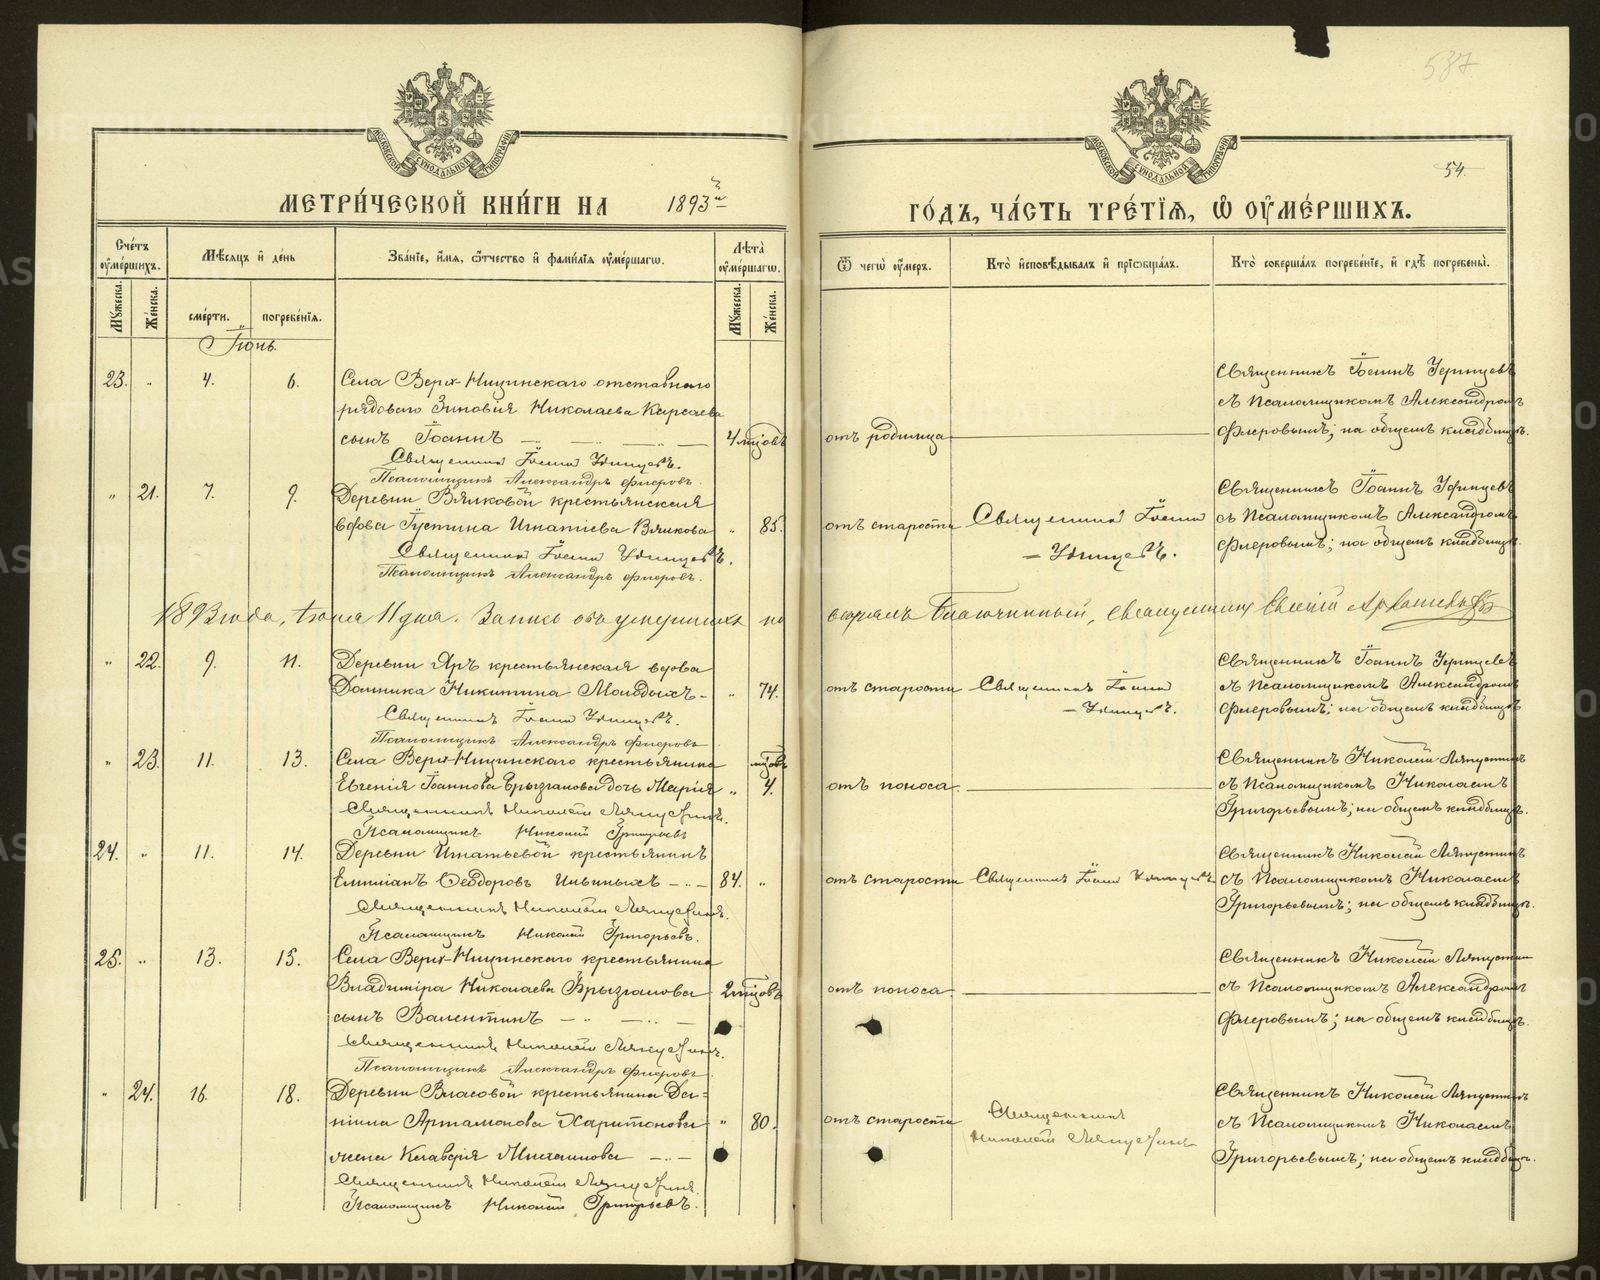 587
54
МОСКОВСКОЙ СѴНОДАЛЬНОЙ ТИПОГРАФІИ
МОСКОВСКОЙ СѴНОДАЛЬНОЙ ТИПОГРАФІИ
МЕТРИ́ЧЕСКОЙ КНИ́ГИ НА 1893й ГО́ДЪ, ЧА́СТЬ ТРЕ́ТІЯ, Ѡ ОУ҆МЕ́РШИХЪ.
Сче́тъ оу҆ме́ршихъ. Мѣ́сяцъ и҆ де́нь Зва́ніе, и҆́мя, ѻ҆́тчество и҆ фами́лія оу҆ме́ршагѡ. Лѣ́та оу҆ме́ршагѡ.
Ѿ чегѡ̀ оу҆́меръ. Кто̀ и҆сповѣ́дывалъ и҆ приѡбща́лъ. Кто̀ соверша́лъ погребе́ніе, и҆ гдѣ̀ погребены̀.
Му́жеска. Же́нска. сме́рти. погребе́нія. Му́жеска. Же́нска.
Іюнь.
23. " 4. 6. Села Верх-Ницинскаго отставного
рядоваго Зиновія Николаева Карсаева
сынъ Іоаннъ 4 мѣсяцовъ
Священникъ Іоаннъ
Псаломщикъ Александръ Флеровъ.
отъ родимца
Священникъ Іоаннъ
съ Псаломщикомъ Александромъ
Флеровымъ; на общемъ кладбищѣ.
" 21. 7. 9. Деревни Вялковой крестьянская
вдова Іустина Игнатіева Вялкова " 85.
Священникъ Іоаннъ
Псаломщикъ Александръ Флеровъ.
отъ старости Священникъ Іоаннъ
Священникъ Іоаннъ
съ Псаломщикомъ Александромъ
Флеровымъ; на общемъ кладбищѣ.
1893 года, Іюня 11 дня. Запись объ умершихъ по
вѣрялъ Благочинный, священникъ
" 22. 9. 11. Деревни Яръ крестьянская вдова
Домника Никитина Молодыхъ - " 74.
Священникъ Іоаннъ
Псаломщикъ Александръ Флеровъ
отъ старости Священникъ Іоаннъ
Священникъ Іоаннъ
съ Псаломщикомъ Александромъ
Флеровымъ; на общемъ кладбищѣ
" 23. 11. 13. Села Верх-Ницинскаго крестьянина мѣсяцовъ
Евгенія Іоаннова Брызгалова дочь Марія " 4.
Священникъ Николай Ляпустинъ.
Псаломщикъ Николай Григорьевъ
отъ поноса.
Священникъ Николай Ляпустинъ
съ Псаломщикомъ Николаемъ
Григорьевымъ; на общемъ кладбищѣ.
24. " 11. 14. Деревни Игнатьевой крестьянинъ
Емилианъ Ѳеодоровъ Ильиныхъ 84. "
Священникъ Николай Ляпустинъ.
Псаломщикъ Николай Григорьевъ.
отъ старости Священникъ Іоаннъ
Священникъ Николай Ляпустинъ
съ Псаломщикомъ Николаемъ
Григорьевымъ; на общемъ кладбищѣ.
25. " 13. 15. Села Верх-Ницинскаго крестьянина
Владиміра Николаева Брызгалова 2 мѣсяцовъ
сынъ Валентинъ
Священникъ Николай Ляпустинъ.
Псаломщикъ Александръ Флеровъ
отъ поноса.
Священникъ Николай Ляпустинъ
съ Псаломщикомъ Александромъ
Флеровымъ; на общемъ кладбищѣ.
" 24. 16. 18. Деревни Власовой крестьянина Да=
ніила Артамонова Харитонова " 80.
жена Клавдія Михаилова
Священникъ Николай Ляпустинъ
Псаломщикъ Николай Григорьевъ.
отъ старости Священникъ
Николай Ляпустинъ
Священникъ Николай Ляпустинъ
съ Псаломщикомъ Николаемъ
Григорьевымъ; на общемъ кладбищѣ.
METRIKI.GASO-URAL.RU